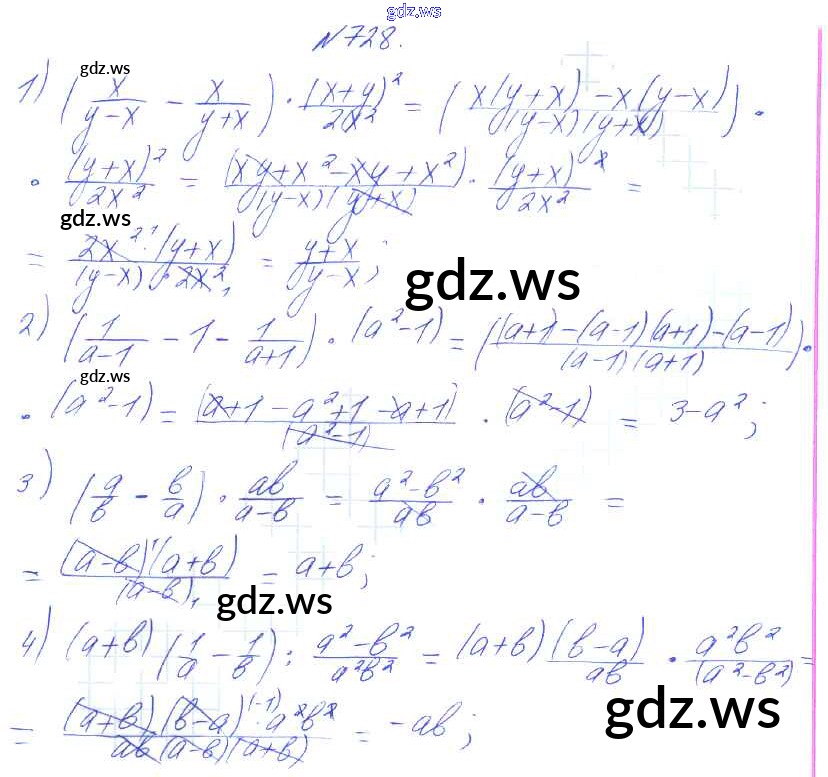 gdz.ws
N728.
gdz.ws
1) (x/(y-x) - x/(y+x)) · (x+y)²/2x² = (x(y+x) - x(y-x)/(y-x)(y+x)) ·
· (y+x)²/2x² = (xy+x²-xy+x²)/(y-x)(y+x) · (y+x)²/2x² =
gdz.ws
= 2x²·(y+x)/(y-x)·2x² = (y+x)/(y-x);
gdz.ws
2) (1/(a-1) - 1 - 1/(a+1)) · (a²-1) = ((a+1)-(a-1)(a+1)-(a-1)/(a-1)(a+1)) ·
gdz.ws
· (a²-1) = (a+1-a²+1-a+1)/(a²-1) · (a²-1) = 3-a²;
3) (a/b - b/a) · ab/(a-b) = (a²-b²)/ab · ab/(a-b) =
= (a-b)(a+b)/(a-b) = a+b;
gdz.ws
4) (a+b)(1/a - 1/b) : (a²-b²)/a²b² = (a+b)(b-a)/ab · a²b²/(a²-b²) =
= (a+b)(b-a)(-1)·a²b²/ab(a-b)(a+b) = -ab;
gdz.ws